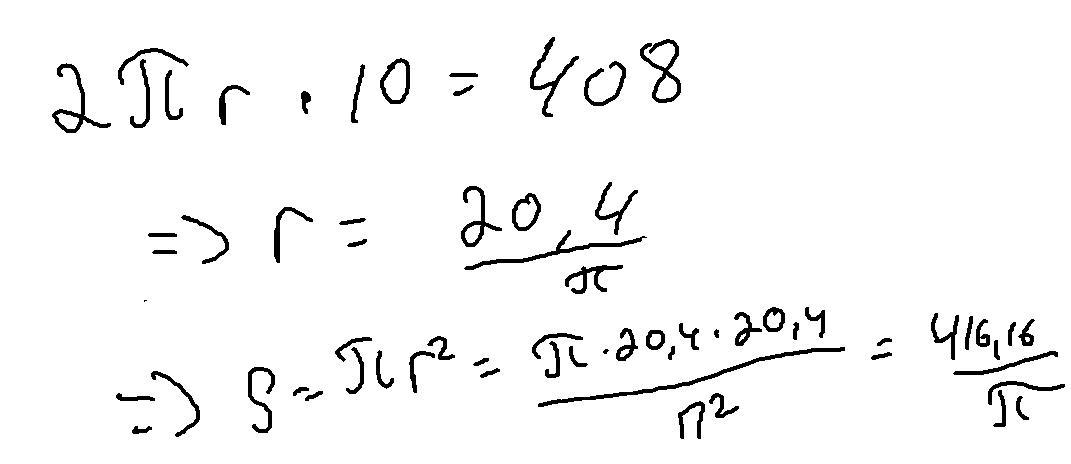 2πr · 10 = 408
=> r = 20,4/π
=> S = πr² = π·20,4·20,4/π² = 416,16/π